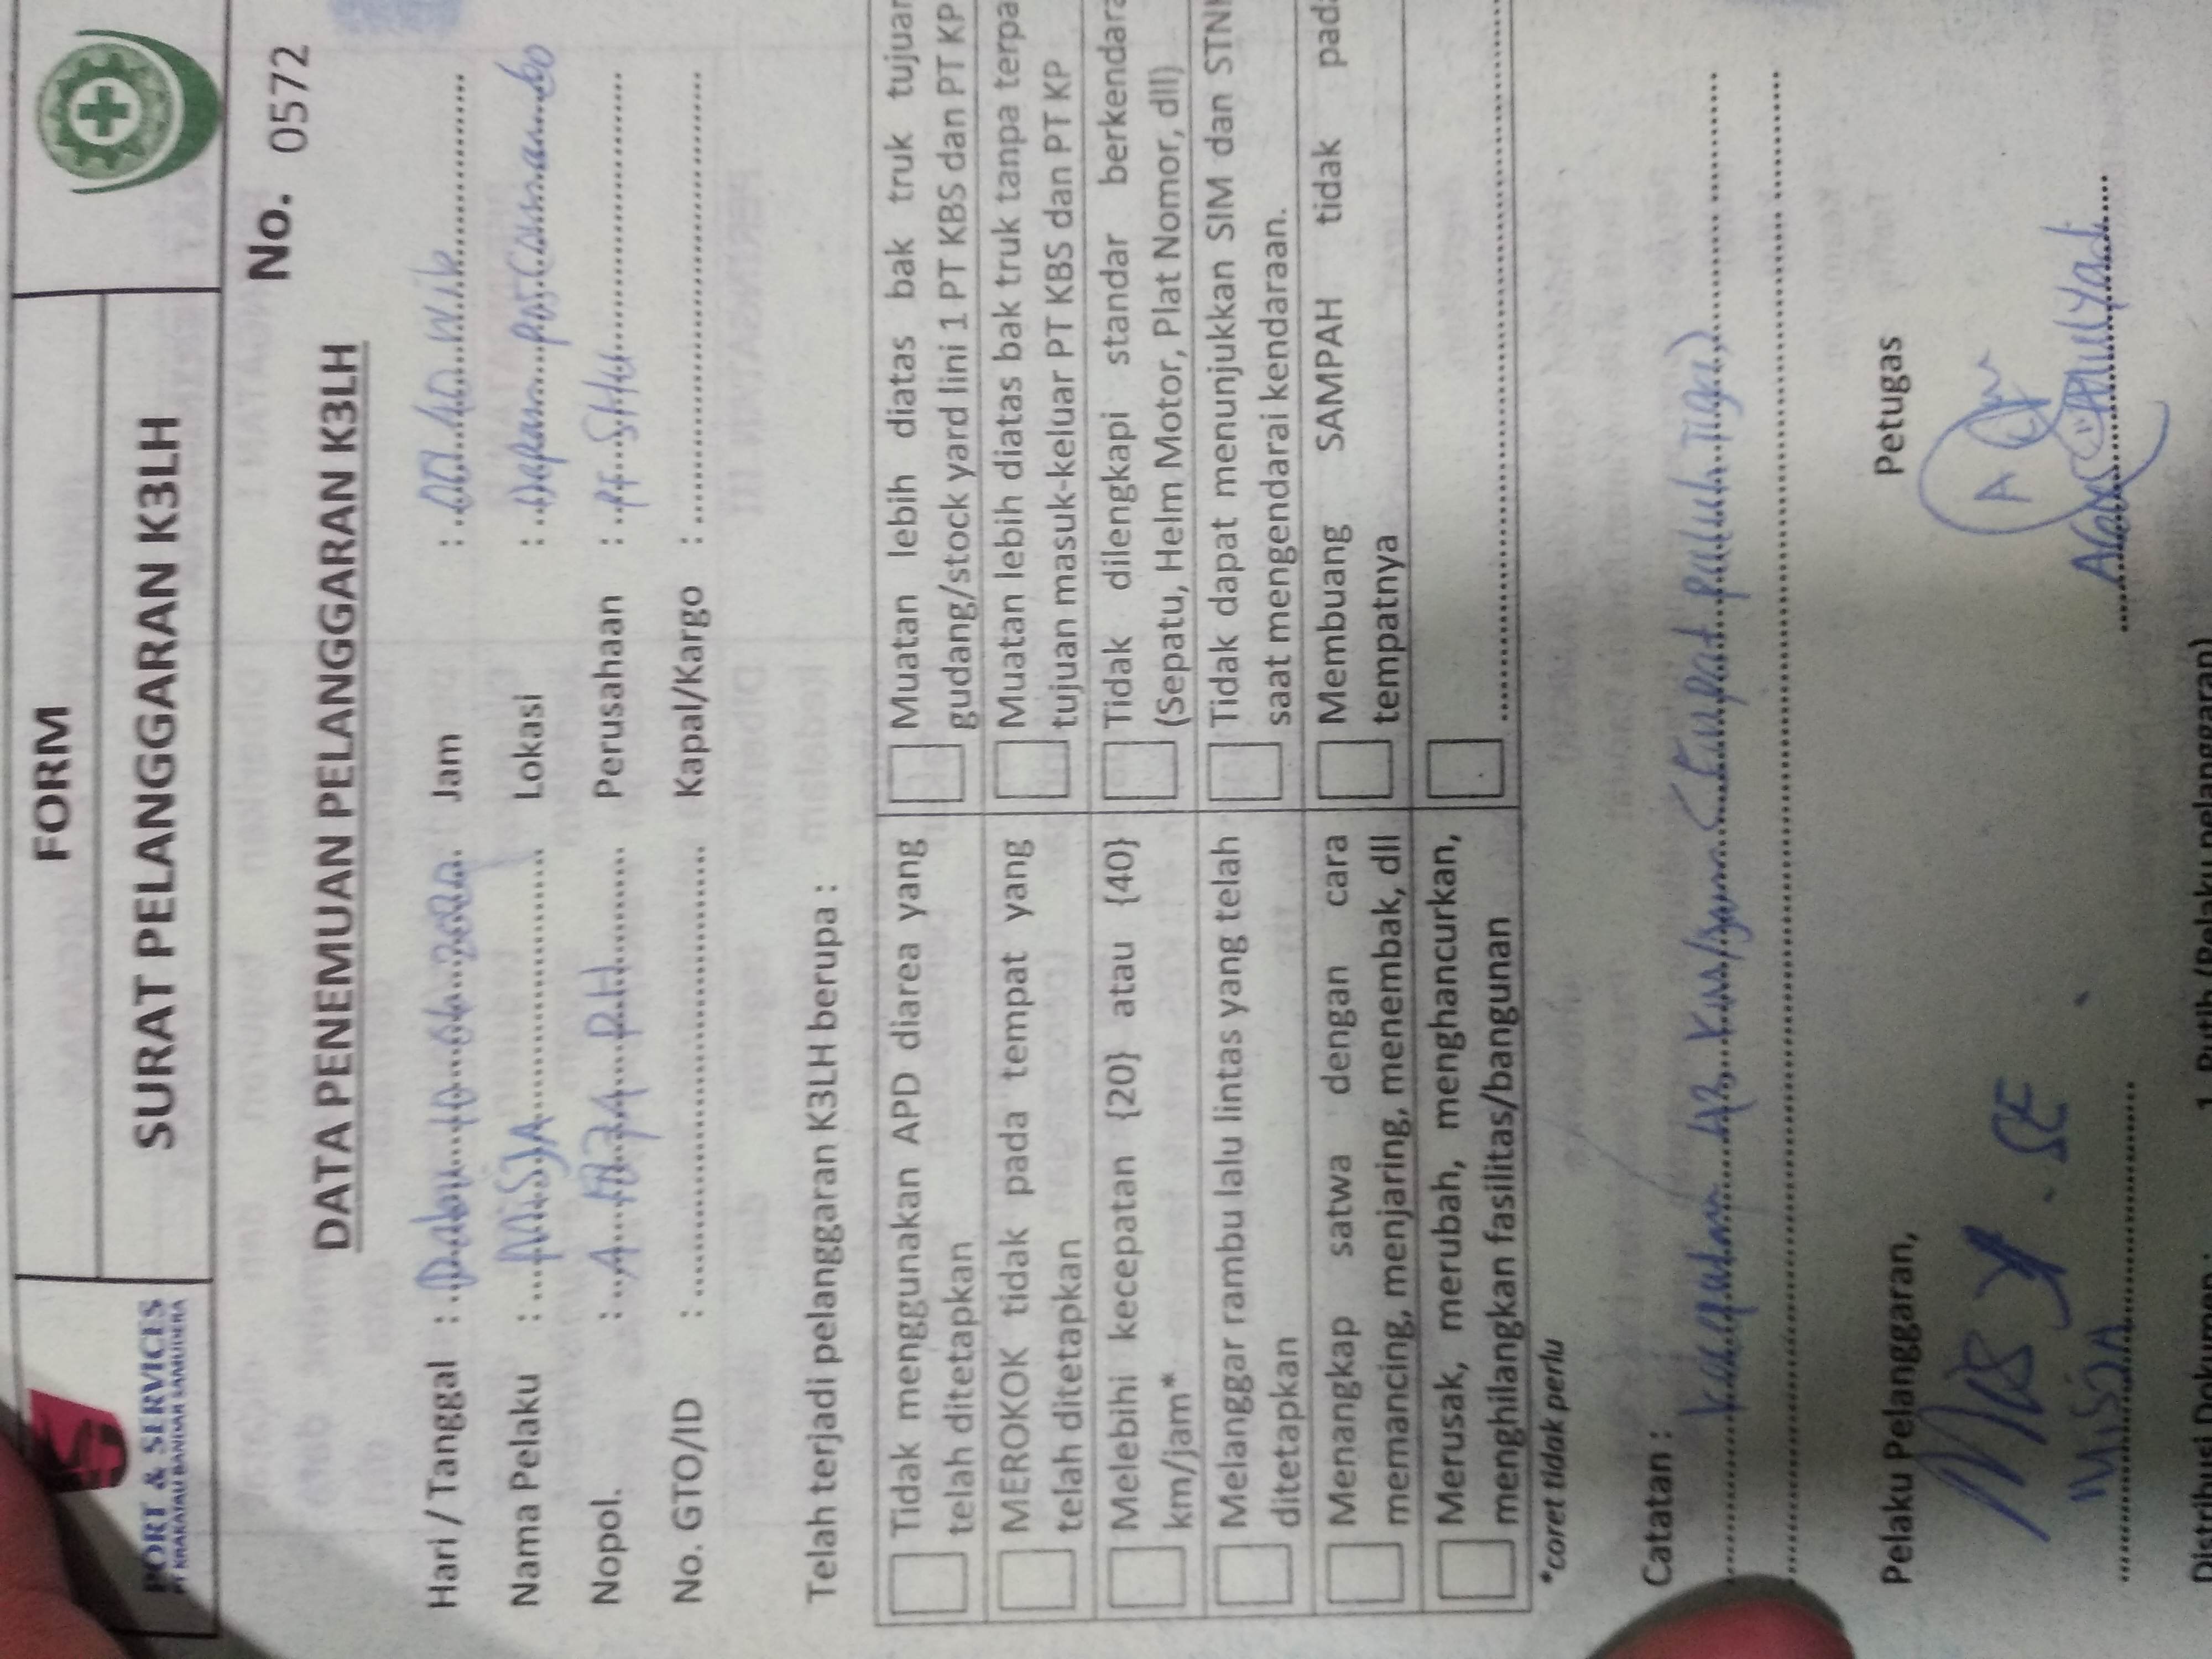 PORT & SERVICES
PT KRAKATAU BANDAR SAMUDERA
FORM
SURAT PELANGGARAN K3LH
No. 0572
DATA PENEMUAN PELANGGARAN K3LH
Hari / Tanggal : Rabu 10-06-2020 Jam :
Nama Pelaku : MISJA Lokasi : Depan Pos
Nopol. : A PH Perusahaan : PT
No. GTO/ID : Kapal/Kargo :
Telah terjadi pelanggaran K3LH berupa :
Tidak menggunakan APD diarea yang telah ditetapkan
Muatan lebih diatas bak truk tujuan gudang/stock yard lini 1 PT KBS dan PT KP
MEROKOK tidak pada tempat yang telah ditetapkan
Muatan lebih diatas bak truk tanpa terpa tujuan masuk-keluar PT KBS dan PT KP
Melebihi kecepatan {20} atau {40} km/jam*
Tidak dilengkapi standar berkendara (Sepatu, Helm Motor, Plat Nomor, dll)
Melanggar rambu lalu lintas yang telah ditetapkan
Tidak dapat menunjukkan SIM dan STNK saat mengendarai kendaraan.
Menangkap satwa dengan cara memancing, menjaring, menembak, dll
Membuang SAMPAH tidak pada tempatnya
Merusak, merubah, menghancurkan, menghilangkan fasilitas/bangunan
*coret tidak perlu
Catatan :
Kecepatan 43 Km/Jam (Empat puluh Tiga)
Pelaku Pelanggaran,
Petugas
MISJA
Distribusi Dokumen : 1. Putih (Pelaku pelanggaran)